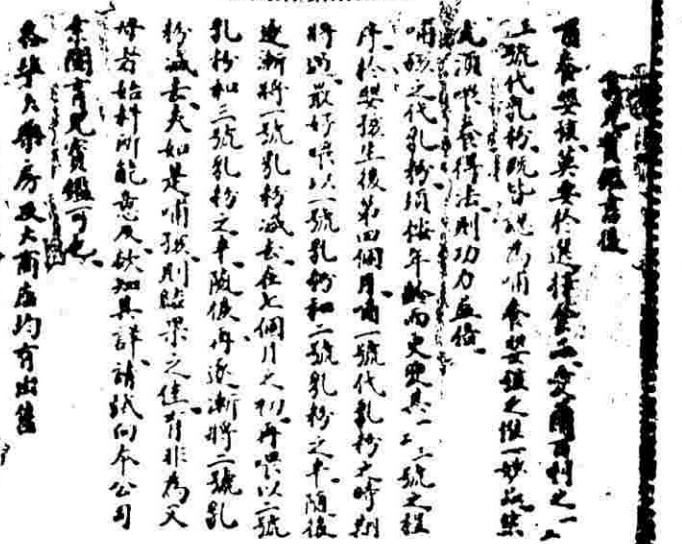 育兒寶鑑書後
首養嬰孩莫要於選擇食品愛蘭百利之一二
三號代乳粉既皆認為哺食嬰孩之惟一妙品然
尤須喂養得法則功力益倍
哺孩之代乳粉須按年齡而更變其一二三號之程
序於嬰孩生後第四個月哺一號代乳粉之時期
將 最好喂以一號乳粉和二號乳粉之半隨後
逐漸將一號乳粉減去在七個月之初再喂以二號
乳粉和三號乳粉之半隨後再逐漸將二號乳
粉減去夫如是哺孩則結果之佳有非為父
母者始料所能意及欲知其詳請試向本公司
索閱育兒寶鑑可也
各埠大藥房及大商店均有出售